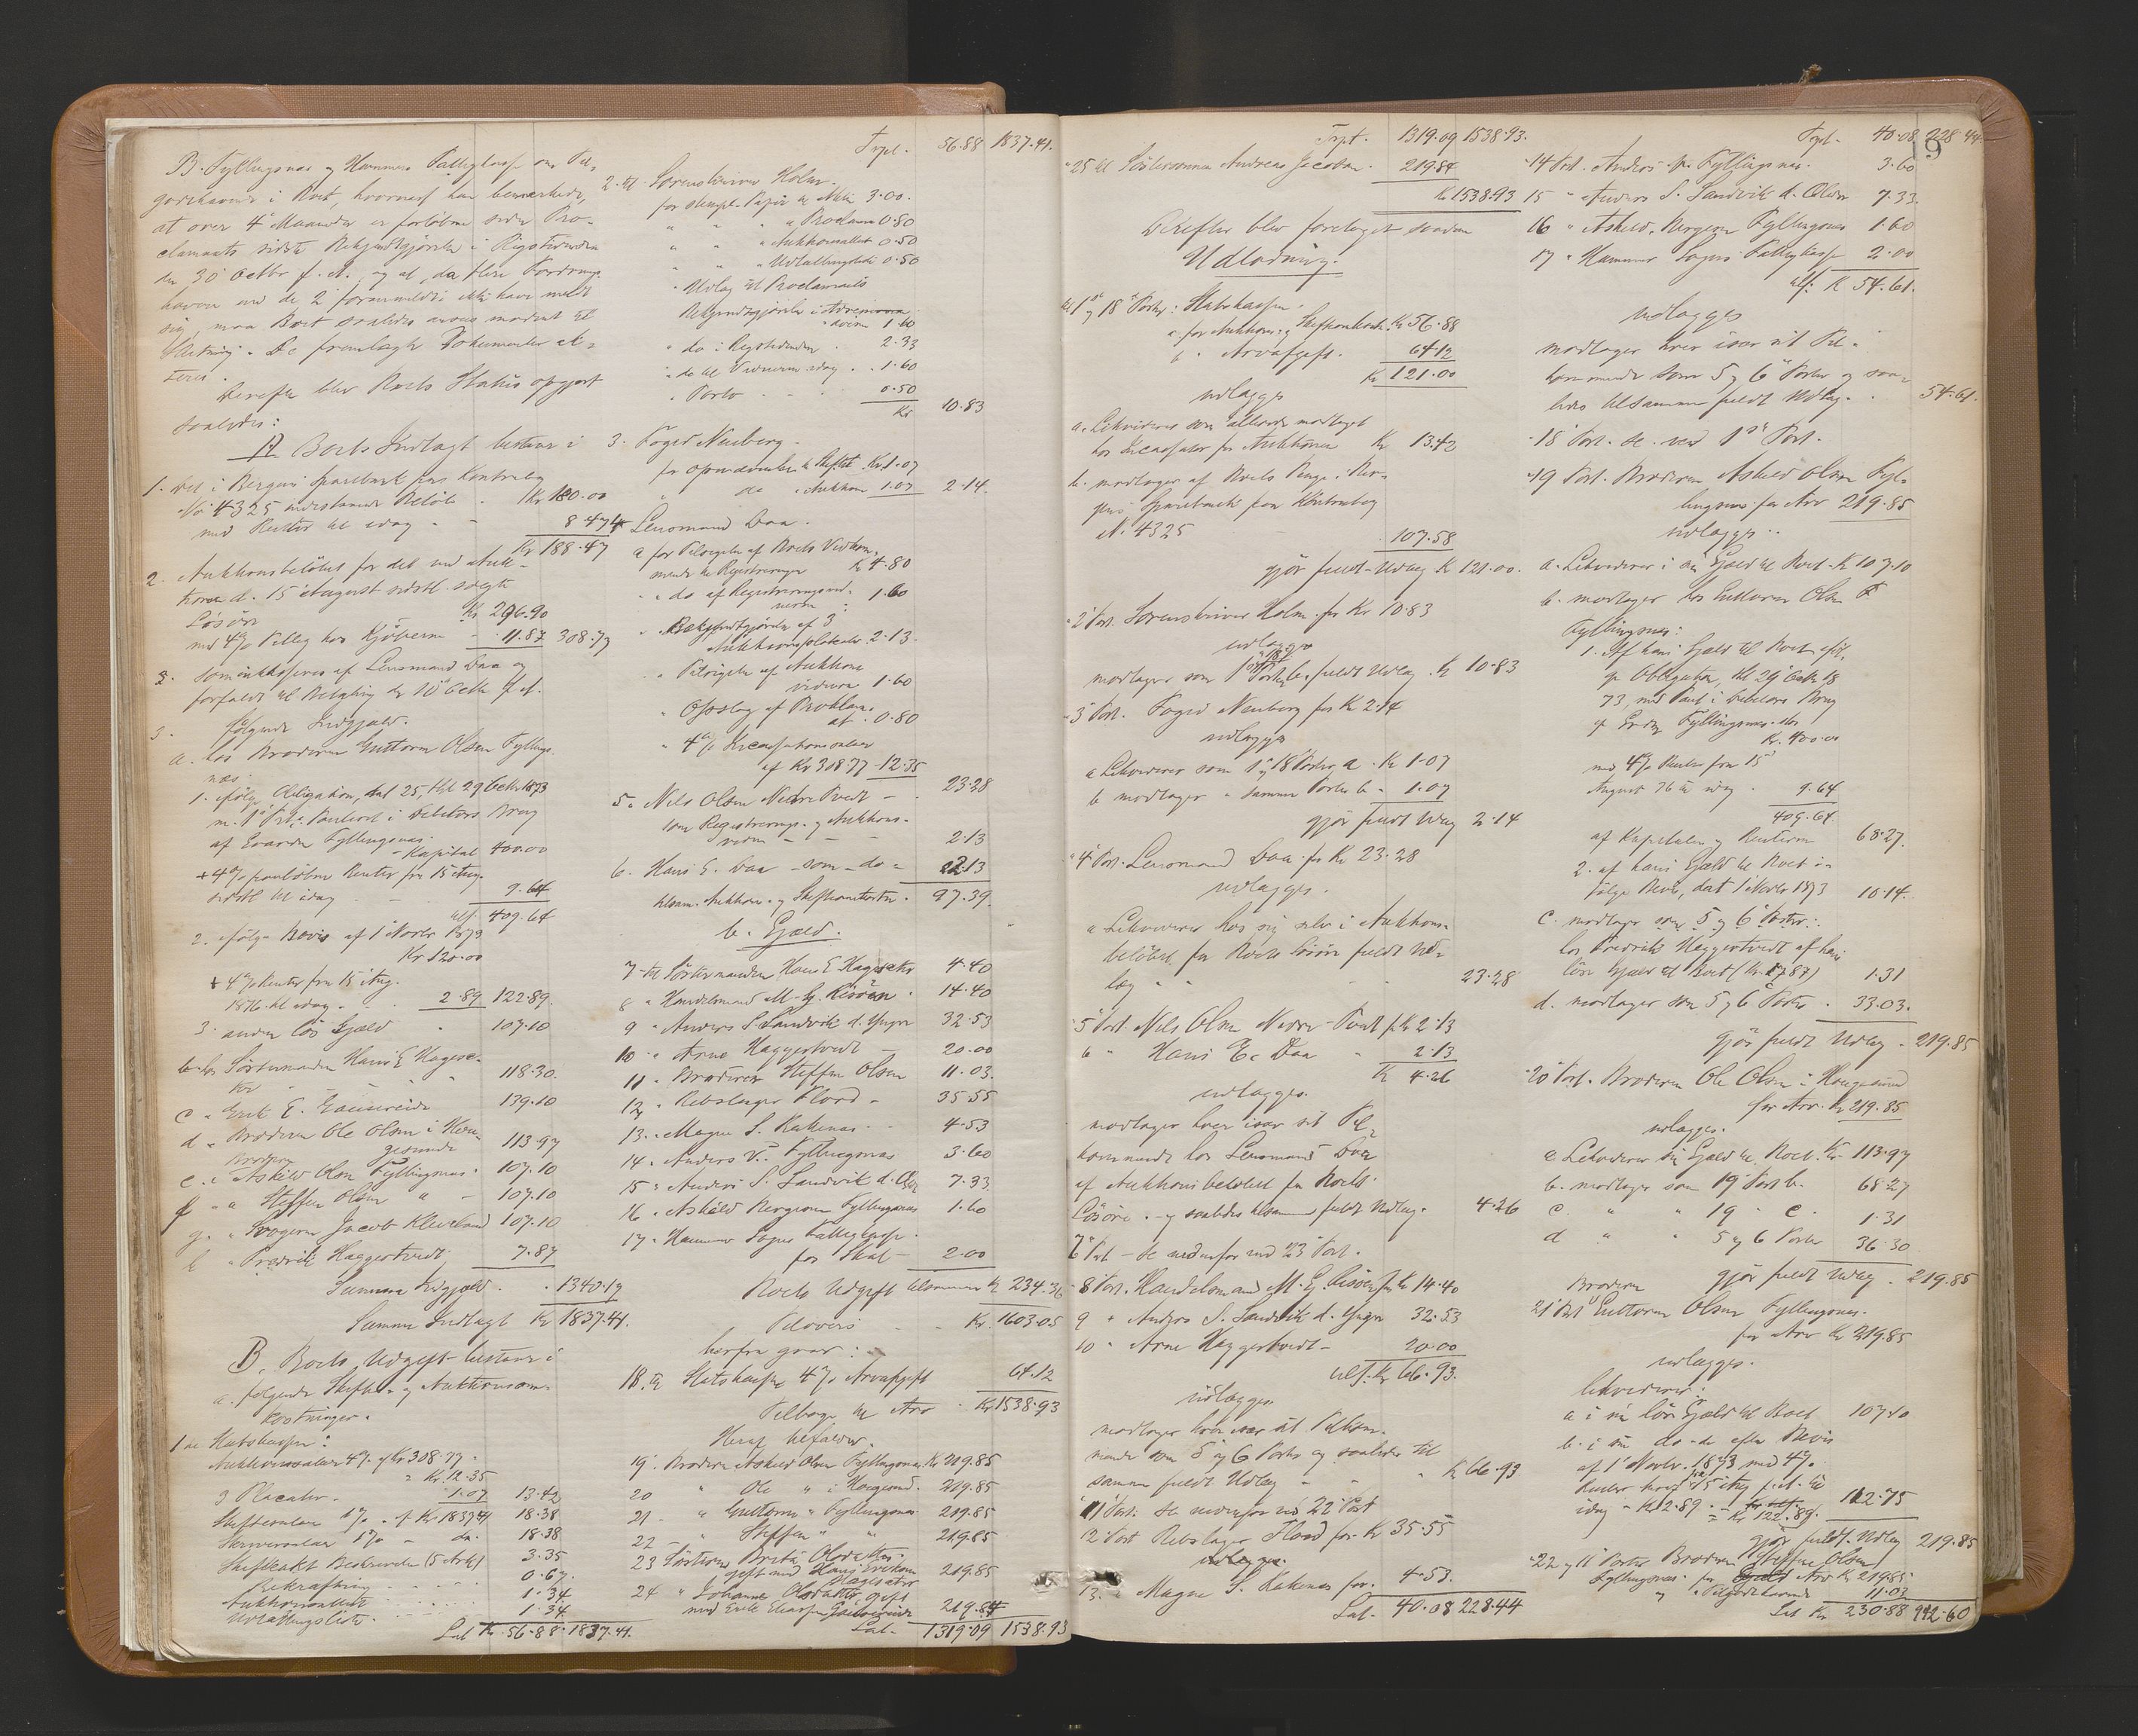 B. Fyllingsnæs og Hammers Fattigkasse om Til-
godehavende i Boet, hvornæst han bemærkede,
at over 4 Maaneder er forløbne siden Pro-
clamaets sidste Bekjendtgjørelse i Rigstidenden
den 30 Octbr f. A., og at, da flere Fordrings-
havere end de 2 foranmeldte ikke have meldt
sig, maa Boet saaledes ansees modent til
Slutning. De fremlagte Dokumenter ak-
teres.
Derefter blev Boets Status opgjort
saaledes:
A. Boets Indtægt bestaar i
1. Det i Bergens Sparebank paa Kontrabog
No 4325 indestaaende Beløb Kr 180.00
med Renter til idag - 8.47
Kr 188.47
2. Auktionsbeløbet for det ved Auk-
tionen d. 15 August sidstl. solgte
Løsøre Kr 296.90
med 4% Tillæg hos Kjøberne - 11.87 308.77
som inkasseres af Lensmand Daa og
forfaldt til Betaling den 10 Octbr f. A.
3. følgende Indgjæld.
a. hos Broderen Guttorm Olsen Fyllings-
næs.
1. ifølge Obligation, dat 25, thl 29 Octbr 1873
m. 1ste Prts. Panteret i Debitors Brug
af Gaarden Fyllingsnæs.
- Kapital 400.00
+ 4% paaløbne Renter fra 15 Aug.
sidstl til idag 9.64
tils. 409.64
2. ifølge Bevis af 1 Novbr 1873
Kr 120.00
+ 4% Renter fra 15 Aug.
1876 til idag - 2.89 122.89.
3. anden løs Gjæld " 107.10
b. hos Søstermanden Hans E Hagesæ-
ter " 118.30.
c " Erik E. 139.10
d " Broderen Ole Olsen i Hau-
gesund 113.97
e. " Broderen Askild Olsen Fyllingsnæs. 107.10
f " " Steffen Olsen " - 107.10
g. " Svogeren Jacob Kleveland 107.10
h " Fredrik Haggertvedt 7.87
Summa Indgjæld. . 1340.17
Summa Indtægt Kr 1837.41.
B. Boets Udgift bestaar i
a. følgende Skifte- og Auktionsom-
kostninger.
1 til Statskassen:
Auktionssalær 4% af Kr 308.77 -
= Kr. 12.35
3 Placater. 1.07 13.42
Skiftesalær 1% - af Kr 1837.41 18.38
Skriversalær 1% - do. 18.38
Skifteakt Beskrivelse (5 Ark) 3.35
Bekræftning 0.67.
Auktionsakt 1.34
Udlodningsliste. 1.34
Lat Kr. 56.88 1837.41.
Tspt. 56.88 1837.41.
2. til Sorenskriver Holm.
for stemplt. Papir til Akten 3.00.
" " " " Proclama 0.50
" " " " Auktionsakten 0.50
" " " " Udlodningsliste 0.50
" Udlæg til Proclamaets
Bekjendtgjørelse i
1.60
" do i Rigstidenden 2.33
" do til Vidnerne idag . . 1.60
" Porto - - 0.50
Kr 10.83
3. Foged Neuberg.
for Opnævnelse til Skiftet. Kr. 1.07
" do " Auktion 1.07 2.14.
4 Lensmand Daa.
a for Tilsigelse af Boets Vedkom-
mende til Registreringen Kr 4.80
" do af Registreringsvid-
nerne 1.60
" Bekjendtgjørelse af 3
Auktionsplakater. 2.13.
" Tilsigelse af Auktions
vidnerne 1.60
" Opslag af Proklam-
at 0.80
" 4% Incassationssalær
af Kr 308.77 - 12.35
23.28
5. Nils Olsen Nedre Tvedt -
som Registrerings- og Auktions-
vidne - - 2.13
6. Hans E. Daa - som - do - 2.13
tilsam. Auktions- og Skifteomkostn. 97.39.
b. Gjæld.
7 til Søstermanden Hans E Hagesæter 4.40
8 " Handelsmand M. G. Risøen . 14.40
9 " Anders S Sandvik d. Yngre 32.53
10 " Arne Haggertvedt - 20.00
11 " Broderen Steffen Olsen 11.03.
12 " Rebslager Flood - 35.55
13. " Magne S. Kakenæs - - 4.53
14. " Anders Fyllingsnæs 3.60
15 " Anders S. Sandvik d. Ældre 7.33
16 " Askild Bergesen Fyllingsnæs 1.60
17 " Hammer Sogns Fattigkasse
for Skat - 2.00
Boets Udgift tilsammen Kr 234.36
Tilovers Kr. 1603.05
herfra gaar:
18. til Statskassen 4% Arveafgift 64.12
Tilbage til Arv . Kr 1538.93
Heraf tilfalder.
19. Broderen Askild Olsen Fyllingsnæs Kr 219.85
20 " Ole " i Haugesund. 219.85
21 - " Guttorm " Fyllingsnæs 219.85
22 - " Steffen " " 219.85
23 Søsteren Brita Olsdatter,
gift med Hans Eriksen
Hagesæter 219.85
24 " Johanne Olsdatter, gift
med Erik 219.84
Lat. 1319.09 1538.93
Tspt. 1319.09 1538.93.
25 til Søstersønnen Andreas Jacobsen. 219.84
Kr 1538.93
Derefter blev foretaget saadan
Udlodning.
til 1ste og 18 Poster: Statskassen.
a. for Auktions- og Skifteomkostn. Kr 56.88
b " Arveafgift. 64.12
Kr 121.00
udlægges
a. Likviderer som allerede modtaget
hos Incassator for Auktionen Kr 13.42
b. modtager af Boets Penge i Ber-
gens Sparebank paa Kontrabog
No. 4325
107.58
gjør fuldt Udlæg Kr 121.00.
2 Post. Sorenskriver Holm for Kr 10.83
udlægges
modtager som 1 og 18 Poster b. fuldt Udlæg . Kr 10.83
3 Post. Foged Neuberg for Kr 2.14
udlægges
a Likviderer som 1 og 18 Poster a . Kr 1.07
b modtager " samme Poster b - 1.07
gjør fuldt Udlæg 2.14
4 Post. Lensmand Daa for Kr 23.28
udlægges.
a Likviderer hos sig selv i Auktions-
beløbet for Boets Løsøre fuldt Ud-
læg " " 23.28
5 Post. Nils Olsen Nedre Tvedt f. Kr 2.13
6 " Hans E. Daa " 2.13
Kr 4.26
udlægges.
modtager hver især sit Til-
kommende hos Lensmand Daa
af Auktionsbeløbet for Boets
Løsøre. - og saaledes tilsammen fuldt Udlæg. 4.26
7 Post - se nedenfor ved 23 Post.
8 Post. Handelsmand M. G. Risøen for Kr 14.40
9 " Anders S. Sandvik d. Yngre 32.53
10 " Arne Haggertvedt - 20.00
tils. Kr. 66.93.
udlægges
modtager hver især sit Tilkom-
mende som 5 og 6 Poster og saaledes til
sammen fuldt Udlæg - " Kr 66.93
11 Post. se nedenfor ved 22 Post
12 Post Rebslager Flood for Kr 35.55
udlægges.
13. " Magne S. Kakenæs for. 4.53.
Lat. 40.08 228.44
Tspt. 40.08 228.44.
9
14 Post. Anders Fyllingsnæs. 3.60
15 " Anders S. Sandvik d. Ældre 7.33.
16 " Askild Bergesen Fyllingsnæs 1.60
17 " Hammer Sogns Fattigkasse 2.00
tils. Kr 54.61.
udlægges
modtager hver især sit Til-
kommende som 5 og 6 Poster og saa-
ledes tilsammen fuldt Udlæg. . 54.61.
18 Post. se ved 1ste Post.
19 Post. Broderen Askild Olsen Fyl-
lingsnæs for Arv 219.85
udlægges.
a. Likviderer i sin Gjæld til Boet - Kr 107.10
b. modtager hos Guttorm Olsen
Fyllingsnæs:
1. Af hans Gjæld til Boet efter
Obligation, thl 29 Octbr 18
73, med Pant i Debitors Brug
af Gaarden Fyllingsnæs
Kr. 400.00
med 4% Renter fra 15
August 76 til idag 9.64
409.64
af Kapitalen og Renterne 68.27.
2. af hans Gjæld til Boet i-
følge Bevis, dat 1 Novbr 1873 10.14.
c. modtager som 5 og 6 Poster:
hos Fredrik Haggertvedt af hans
løse Gjæld til Boet (Kr. 7.87) 1.31
d. modtager som 5 og 6 Poster . 33.03.
gjør fuldt Udlæg . 219.85
20 Post. Broderen Ole Olsen i Haugesund
for Arv. Kr 219.85
udlægges.
a Likviderer sin Gjæld til Boet. Kr. 113.97
b. modtager som 19 Post b. 68.27
c. " " 19 " c. 1.31
d " " 5 og 6 Poster 36.30
gjør fuldt Udlæg . 219.85
21 Post Broderen Guttorm Olsen Fyllingsnæs.
for Arv Kr 219.85
udlægges.
likviderer:
a i sin løse Gjæld til Boet 107.10
b. i sin do - do efter Bevis
af 1 Novbr. 1873 med 4%
Renter fra 15 Aug f. A. til
idag - Kr 2.89 = Kr 122.89. 112.75
gjør fuldt Udlæg 219.85
22 og 11 Poster Broderen Steffen Olsen
Fyllingsnæs for Arv Kr 219.85
" " Tilgodehavende 11.03
Lat Kr. 230.88 942.60